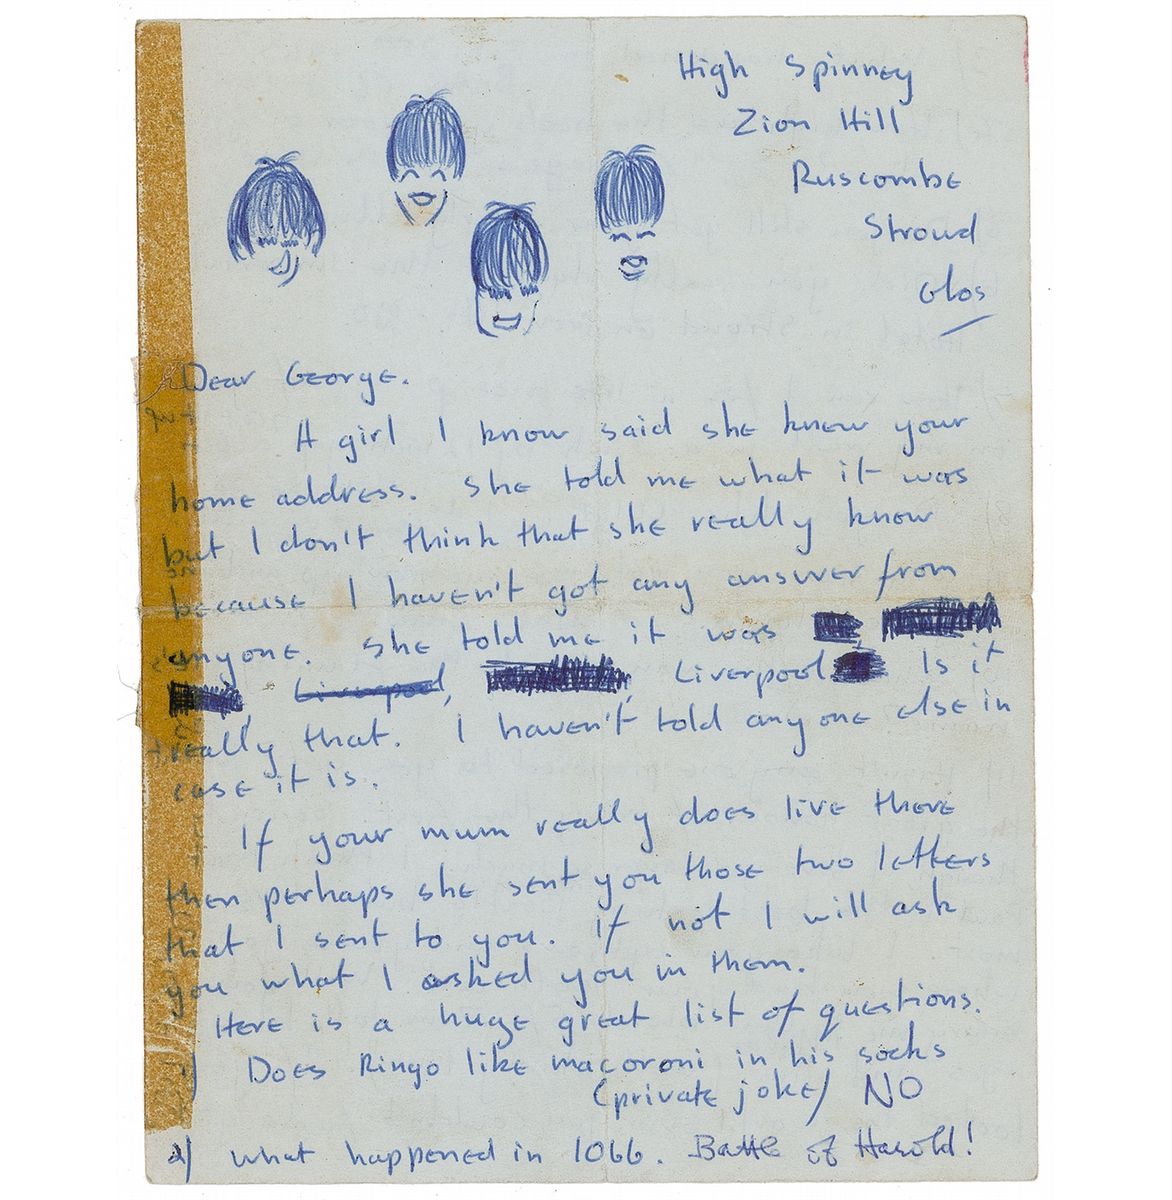 High Spinney
Zion Hill
Ruscombe
Stroud
Glos
Dear George.
A girl I know said she knew your
home address. She told me what it was
but I don't think that she really know
because I haven't got any answer from
anyone. She told me it was
Liverpool, Liverpool Is it
really that. I haven't told anyone else in
case it is.
If your mum really does live there
then perhaps she sent you those two letters
that I sent to you. If not I will ask
you what I asked you in them.
Here is a huge great list of questions.
1) Does Ringo like macoroni in his socks
(private joke) NO
2) what happened in 1066. Battle of Harold!